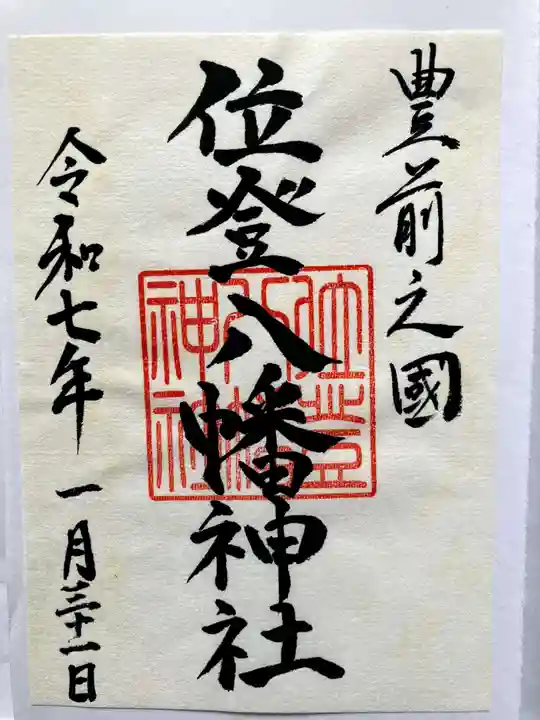 豊前之國
位登八幡神社
令和七年 一月三十一日
位登
八幡
神社